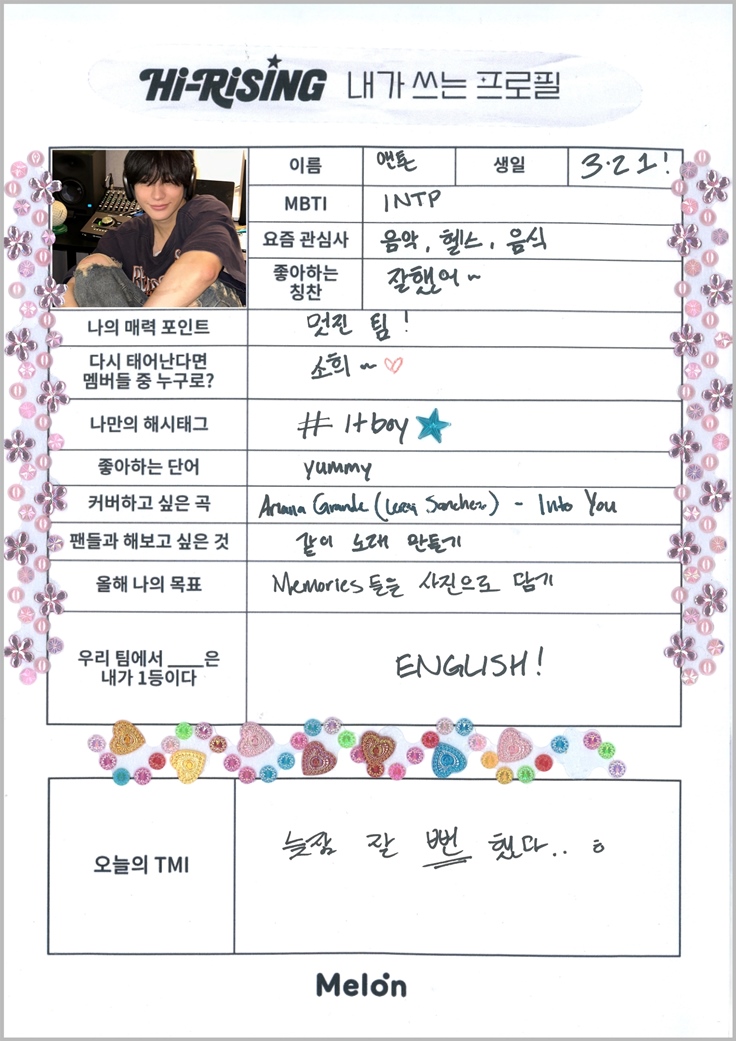 Hi-RiSING 내가 쓰는 프로필
이름 앤톤 생일 3.21!
MBTI INTP
요즘 관심사 음악, 헬스, 음식
좋아하는
칭찬 잘했어~
나의 매력 포인트 멋진 팀!
다시 태어난다면
멤버들 중 누구로? 소희~♡
나만의 해시태그 # It boy ★
좋아하는 단어 yummy
커버하고 싶은 곡 Ariana Grande ( Sanchez) - Into You
팬들과 해보고 싶은 것 같이 노래 만들기
올해 나의 목표 Memories들을 사진으로 담기
우리 팀에서 ____은
내가 1등이다 ENGLISH!
오늘의 TMI 늦잠 잘 뻔 했다.. ㅎ
Melon